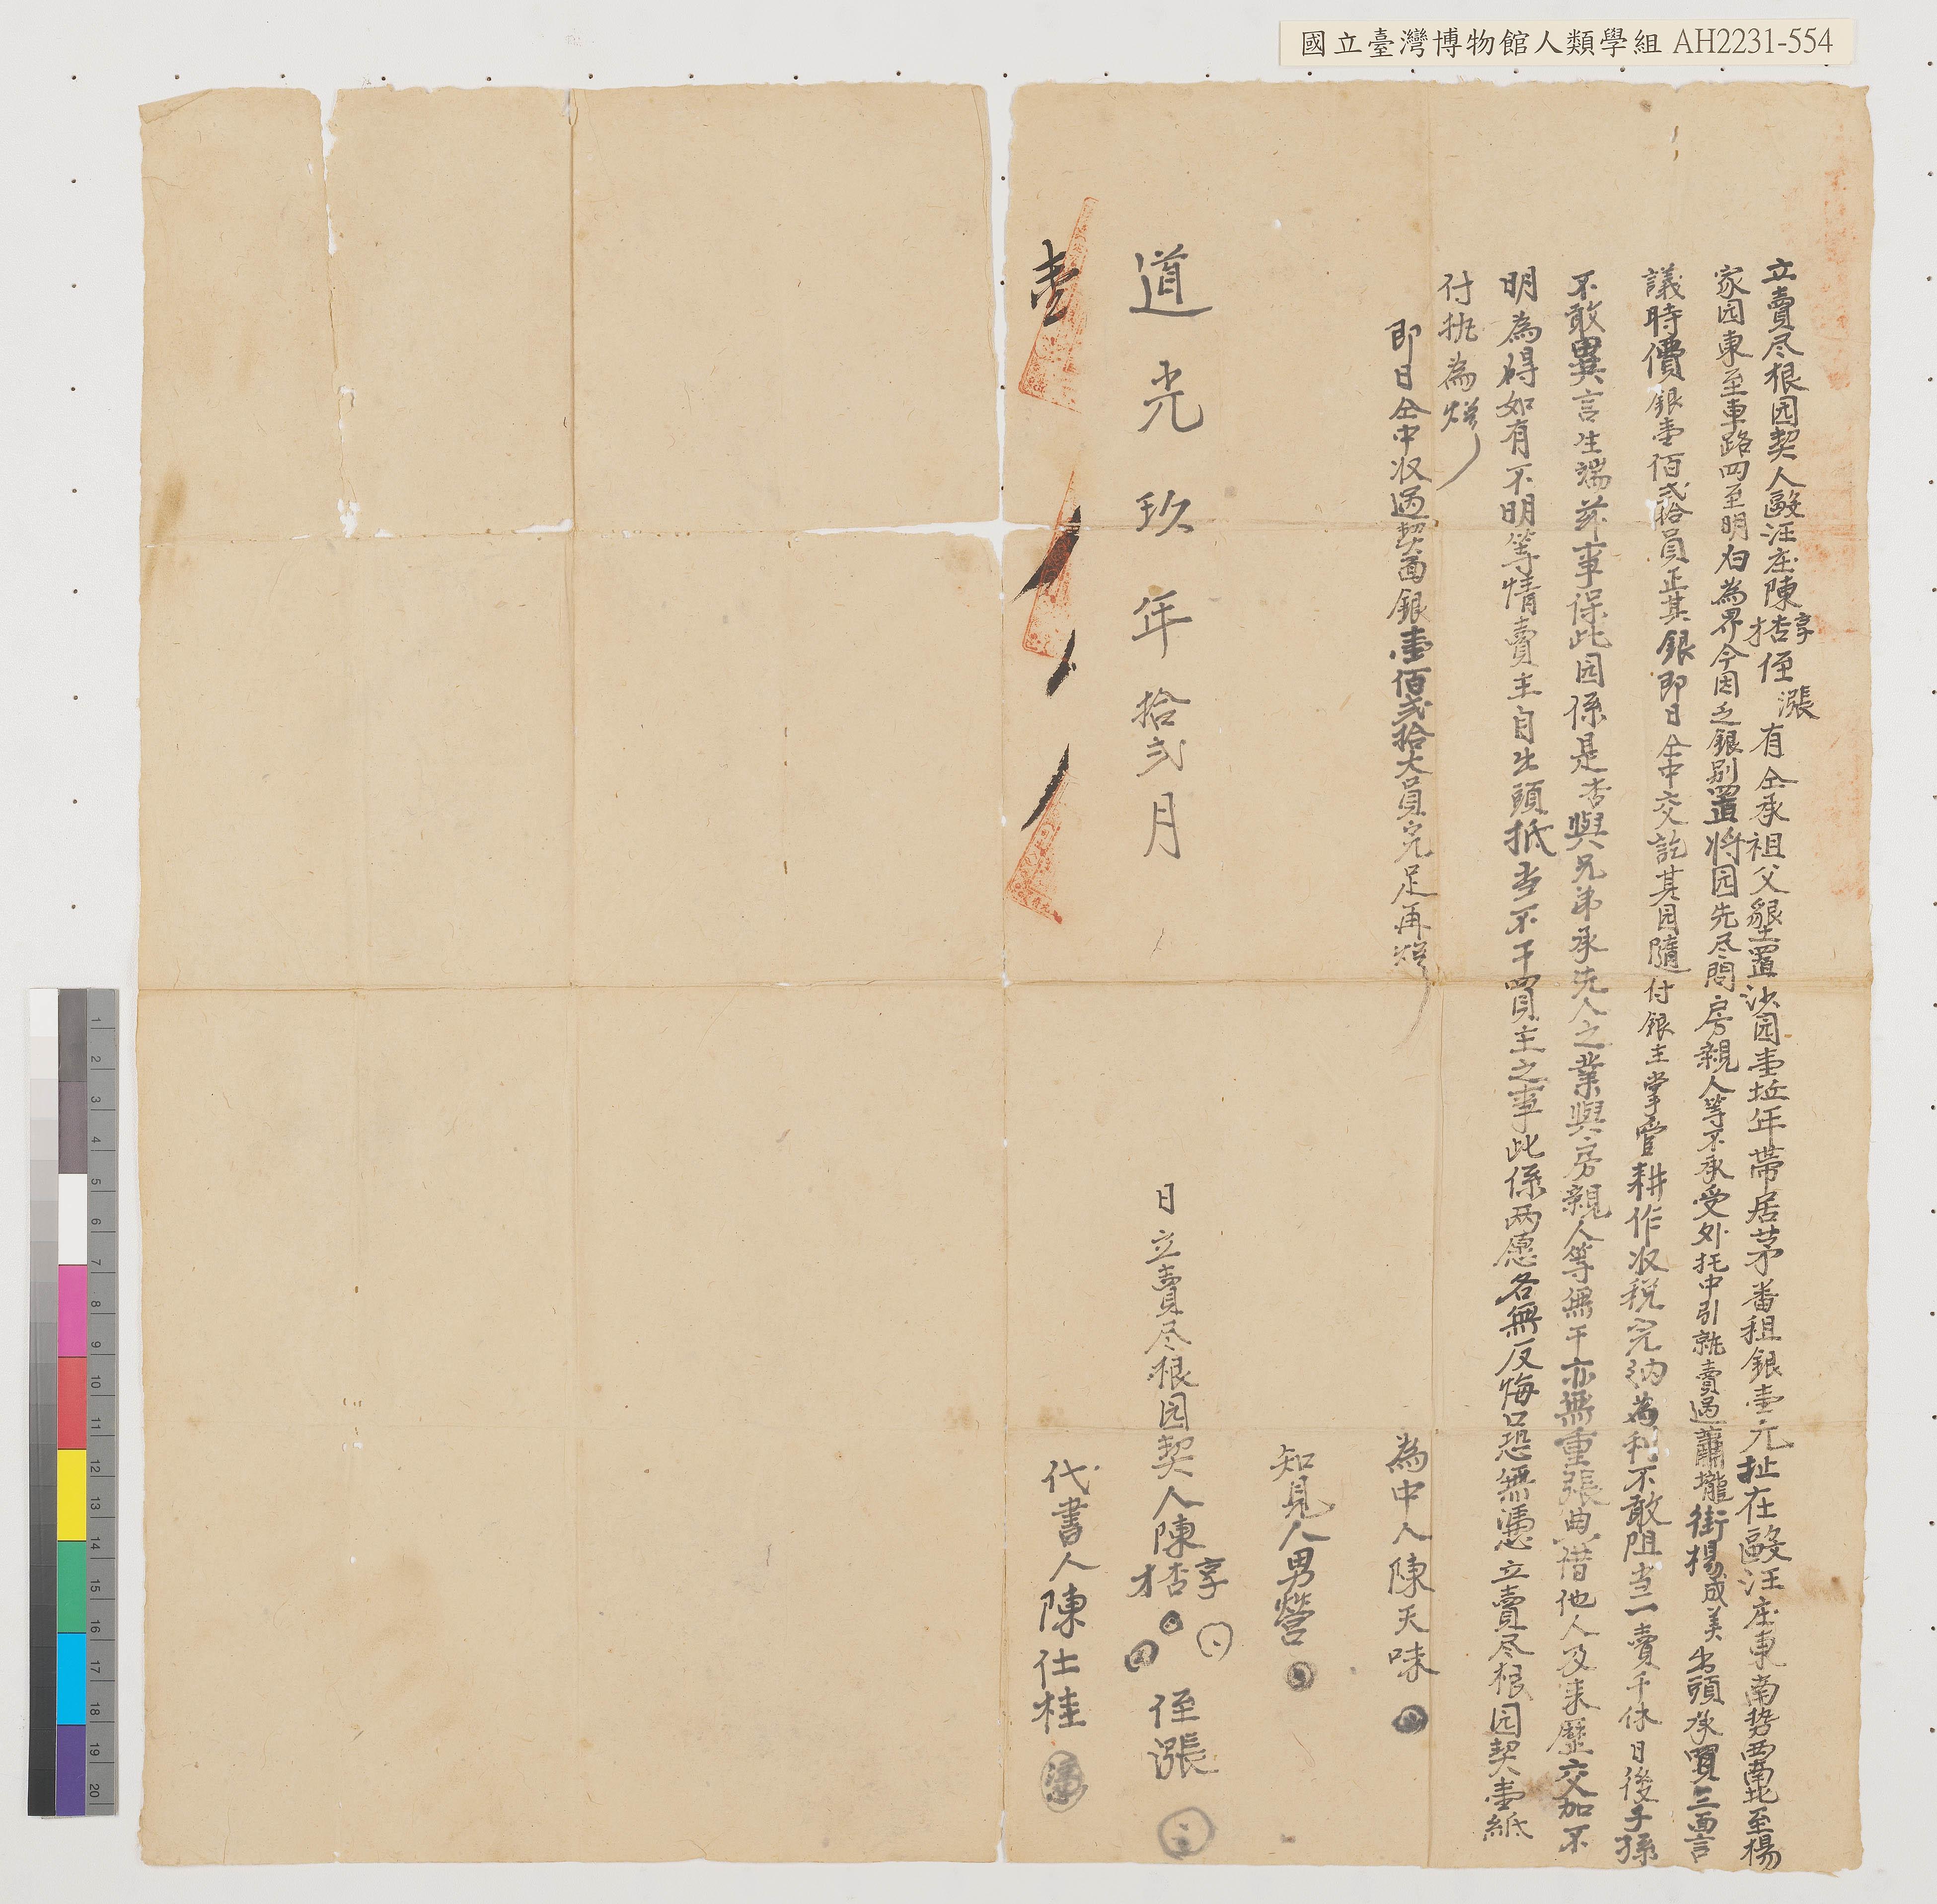 國立臺灣博物館人類學組 AH2231-554
立賣尽根园契人毆汪庄陳享杏才侄漲有仝承祖父墾置沙园壹坵年帶居茅番租銀壹元址在毆汪庄東南勢西南北至楊
家园東至車路四至明白為界今因乏銀别置将园先尽問房親人等不承受外托中引就賣過蕭壠街楊成美出頭承買三面言
議時價銀壹佰弍拾員正其銀即日仝中交訖其园隨付銀主掌管耕作收税完納為利不敢阻当一賣千休日後子孫
不敢異言生端茲事保此园係是杏與兄弟承先人之業與房親人等無干亦無重張典借他人及來歷交加不
明為碍如有不明等情賣主自出頭抵当不干買主之事此係两愿各無反悔口恐無憑立賣尽根园契壹紙
付执為炤
即日仝中收過契面銀壹佰弍拾大員完足再炤
為中人陳天味
知見人男營
道光玖年拾弍月 日立賣尽根园契人陳享杏才 侄漲
代書人陳仕桂
壹
1 2 3 4 5 6 7 8 9 10 11 12 13 14 15 16 17 18 19 20